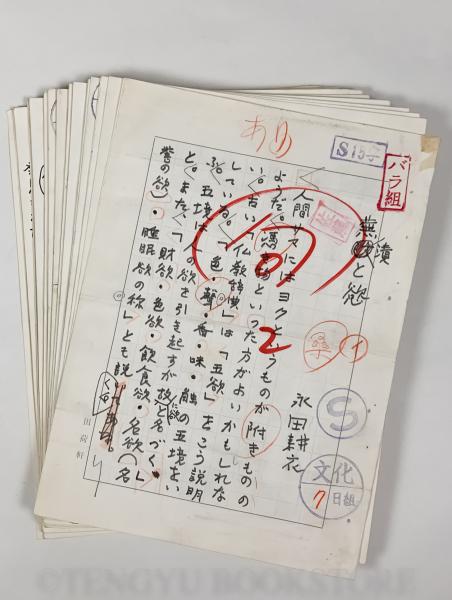 あり
バラ組
永田耕衣
人間サマにはヨクというものが附きものの
ようだ。憑きものといった方がよいかもしれな
い。古い『仏教辞典』は「五欲」をこう説明
している。「色・聲・香・味・触の五境をい
ふ。五境は人の欲を引き起すが故に欲と名づく」
と。また「財欲・色欲・飲食欲・名欲(名
誉の欲)・睡眠欲の称」とも説
2
イ
S
文化
7日組
田荷軒
©TENGYU BOOKSTORE